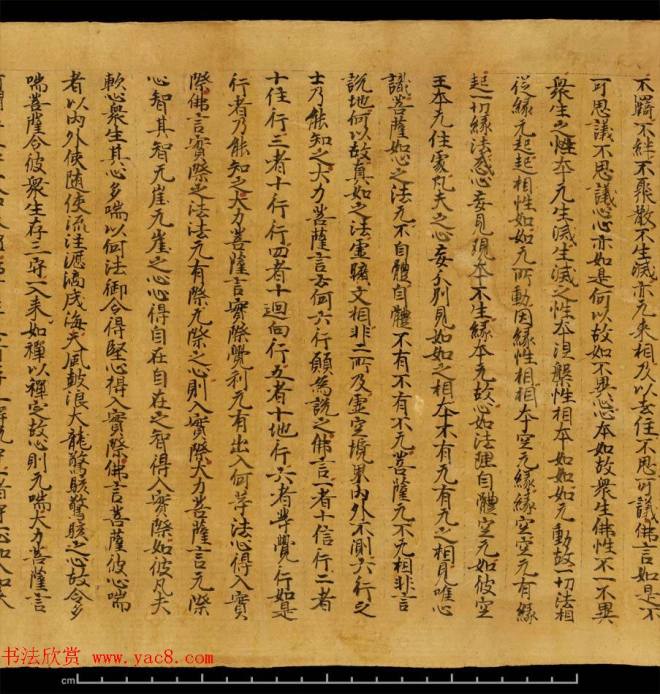 不羇不絆不聚散不生滅亦无來相及以去住不思可議佛言如是不
可思議不思議心心亦如是何以故如不異心心本如故衆生佛性不一不異
衆生之性本无生滅生滅之性本涅槃性相本如如如无動故一切法相
從緣无起起相性如如无所動因緣性相相本空无緣緣空空无有緣
起一切緣法惑心妄見現本不生緣本无故心如法理自體空无如彼空
王本无住處凡夫之心妄分別見如如之相本不有无有无之相見唯心
識菩薩如心之法无不自體自體不有不有不无菩薩无不无相非言
說地何以故真如之法虛曠文相非二所及虛空境界內外不測六行之
士乃能知之大力菩薩言云何六行願為說之佛言一者十信行二者
十住行三者十行行四者十迴向行五者十地行六者等覺行如是
行者乃能知之大力菩薩言實際覺利无有出入何等法心得入實
際佛言實際之法法无有際无際之心則入實際大力菩薩言无際
心智其智无崖无崖之心心得自在自在之智得入實際如彼凡夫
軟心衆生其心多喘以何法御令得堅心得入實際佛言菩薩彼心喘
者以內外使隨使流注瀝滴成海天風鼓浪大龍驚駭驚駭之心故令多
喘菩薩令彼衆生存三守一入來如禪以禪定故心則无喘大力菩薩言
书法欣赏
www.yac8.com
cm